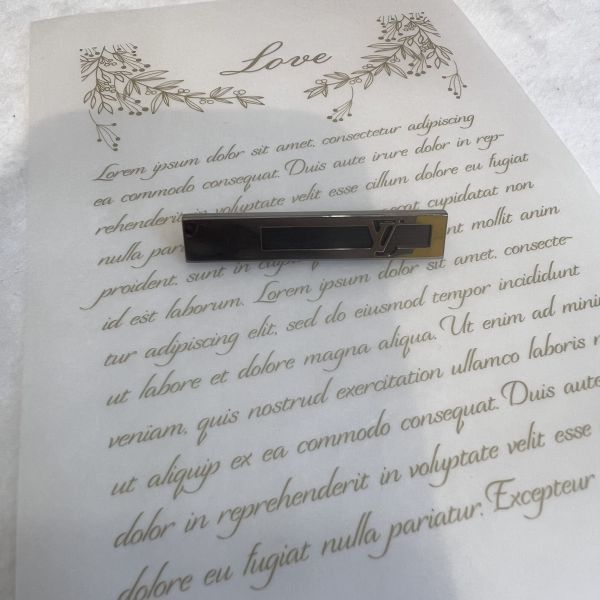 Love
Lorem ipsum dolor sit amet, consectetur adipiscing
ea commodo consequat. Duis aute irure dolor in rep-
rehenderit in voluptate velit esse cillum dolore eu fugiat
nulla par cupidatat non
proident, sunt in nt mollit anim
id est laborum. Lorem ipsum dolor sit amet, consecte-
tur adipiscing elit, sed do eiusmod tempor incididunt
ut labore et dolore magna aliqua. Ut enim ad mini
veniam, quis nostrud exercitation ullamco laboris n
ut aliquip ex ea commodo consequat. Duis aute
dolor in reprehenderit in voluptate velit esse
dolore eu fugiat nulla pariatur. Excepteur
LV